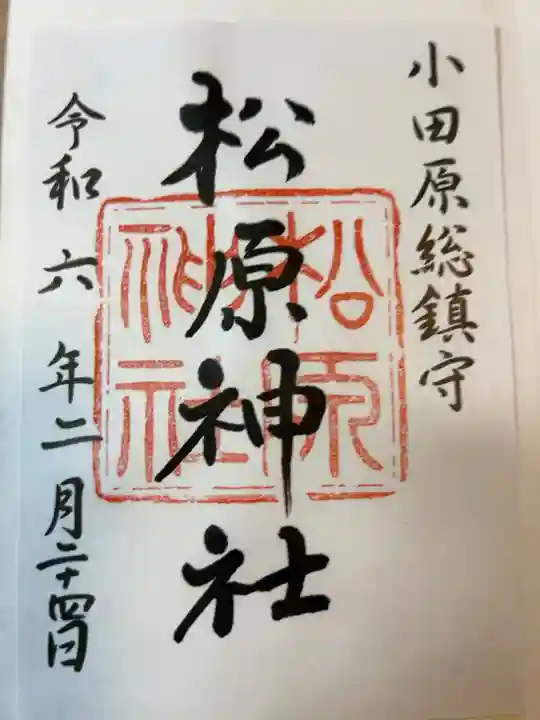 小田原総鎮守
松原神社
松原
神社
令和六年二月二十四日